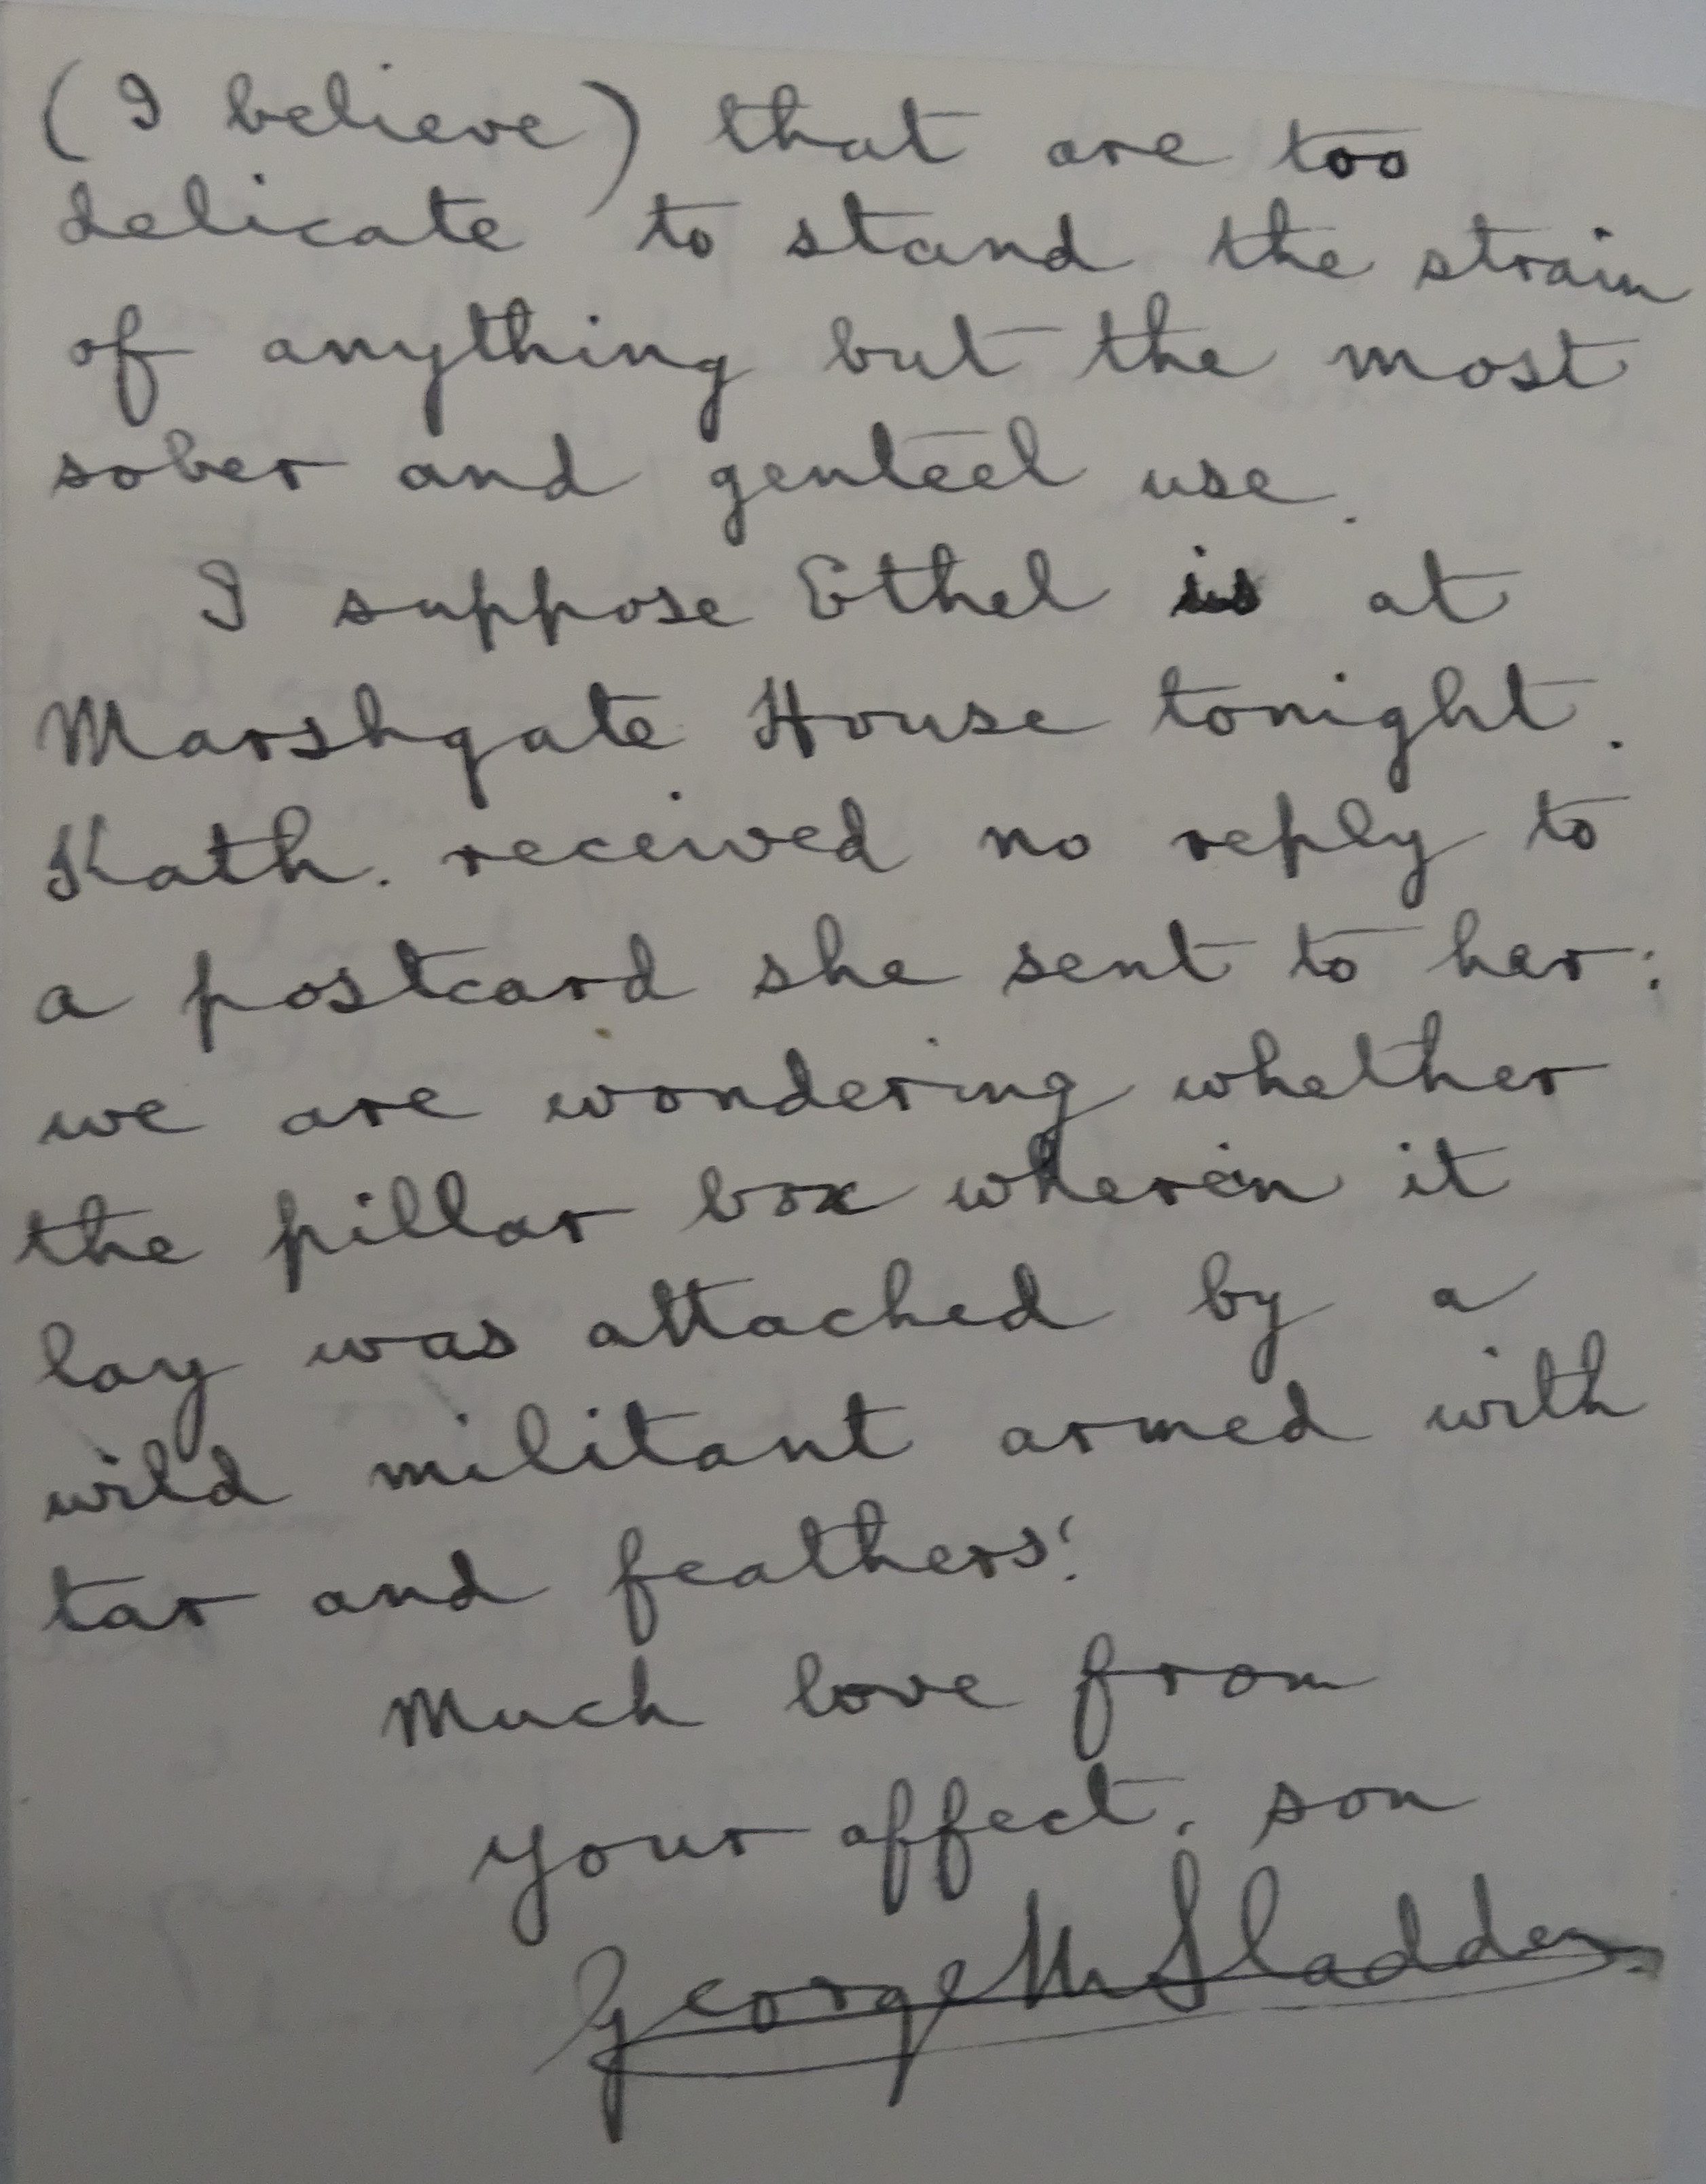 (I believe) that are too
delicate to stand the strain
of anything but the most
sober and genteel use.
I suppose Ethel is at
Marshgate House tonight.
Kath. received no reply to
a postcard she sent to her:
we are wondering whether
the pillar box wherein it
lay was attached by a
wild militant armed with
tar and feathers!
Much love from
your affect. son
George M Sladden